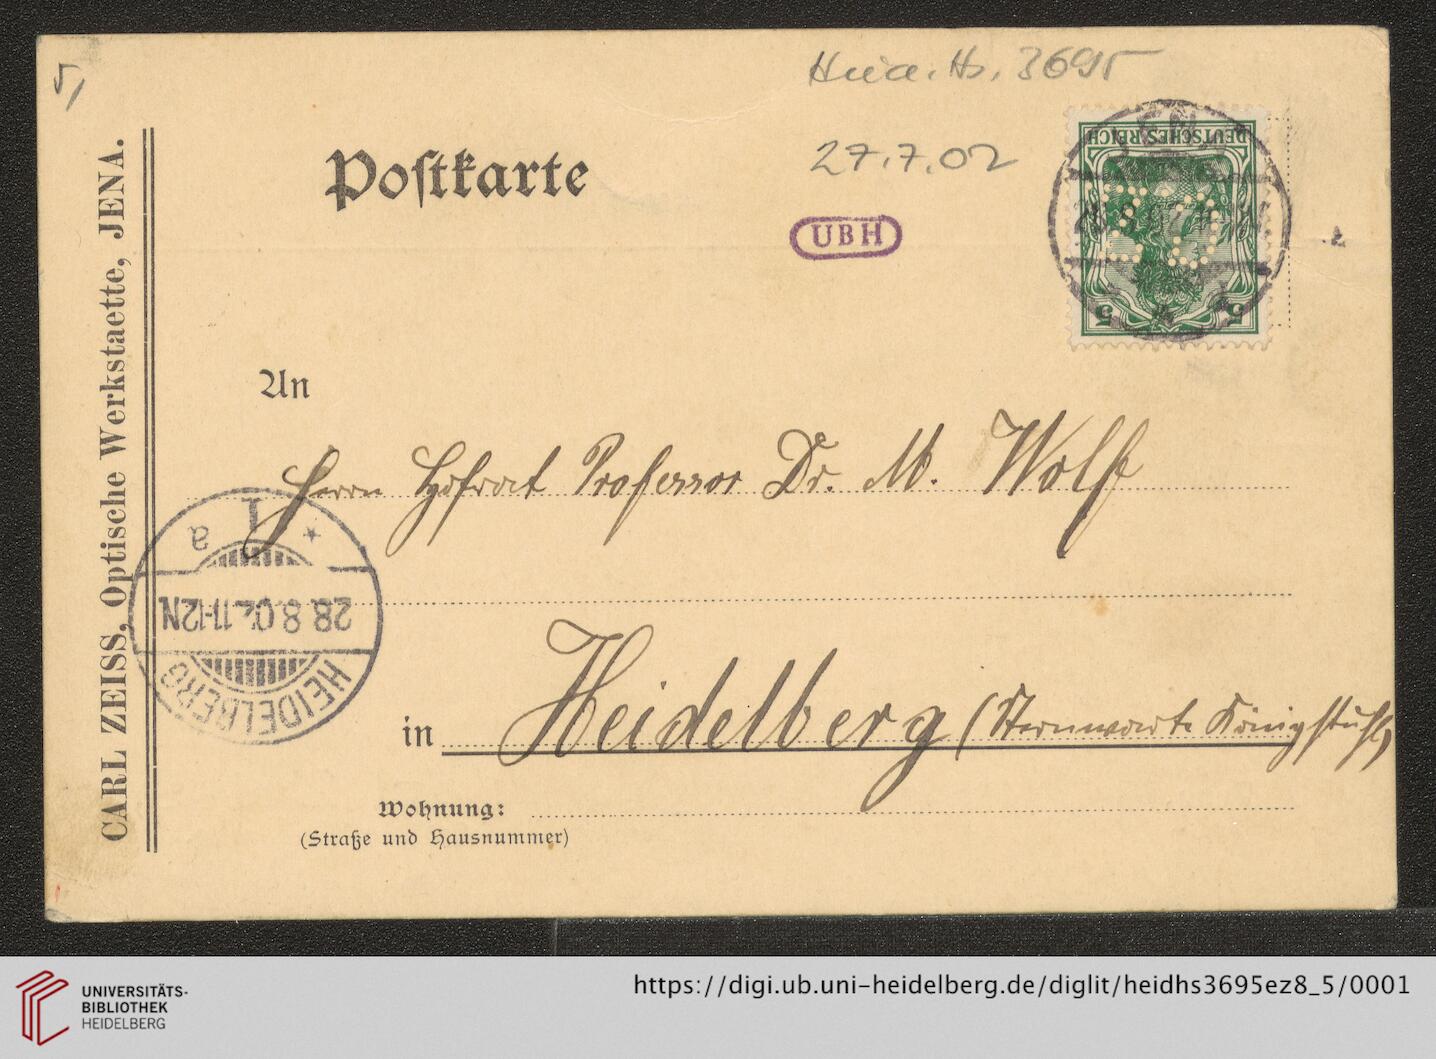 5,
Heid. Hs. 3695
27.7.02
Postkarte
UBH
DEUTSCHES REICH
5 5
CARL ZEISS, Optische Werkstaette, JENA.
An
Herrn Hofrat Professor Dr. M. Wolf
1
a
28.8.02. 11-12N
HEIDELBERG
in Heidelberg (Sternwarte Königstuhl)
Wohnung:
(Straße und Hausnummer)
UNIVERSITÄTS-
BIBLIOTHEK
HEIDELBERG
https://digi.ub.uni-heidelberg.de/diglit/heidhs3695ez8_5/0001